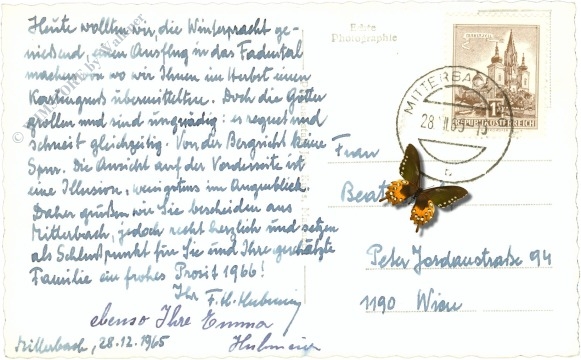 Heute wollten wir, die Winterpracht ge-
nießend, einen Ausflug in das Fadental
machen, wo wir Ihnen im Herbst einen
Kartengruß übermittelten. Doch die Götter
grollen und sind ungnädig: es regnet und
schneit gleichzeitig. Von der Bergsicht keine
Spur. Die Ansicht auf der Vorderseite ist
eine Illusion, wenigstens im Augenblick.
Daher grüßen wir Sie bescheiden aus
Mitterbach, jedoch recht herzlich und setzen
als Schlußpunkt für Sie und Ihre geschätzte
Familie ein frohes Prosit 1966!
Ihr F. H.
ebenso Ihre Emma
Hubmeier
Mitterbach, 28.12.1965
Echte
Photographie
MITTERBACH
28
REPUBLIK ÖSTERREICH
Frau
Beat
Peter Jordanstraße 94
1190 Wien
© by